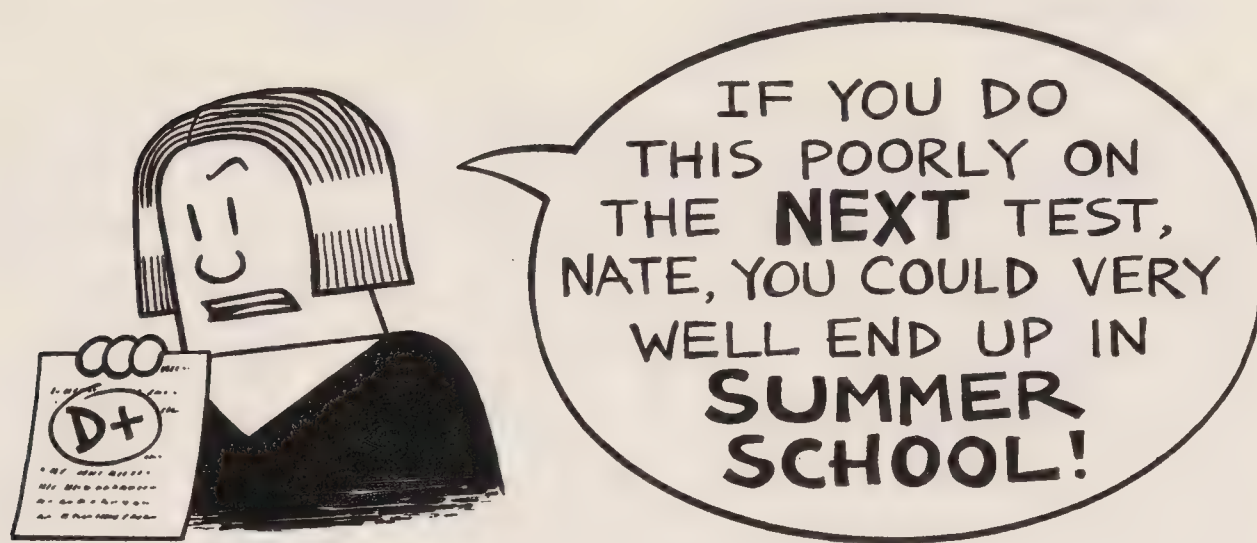 IF YOU DO
THIS POORLY ON
THE NEXT TEST,
NATE, YOU COULD VERY
WELL END UP IN
SUMMER
SCHOOL!
D+